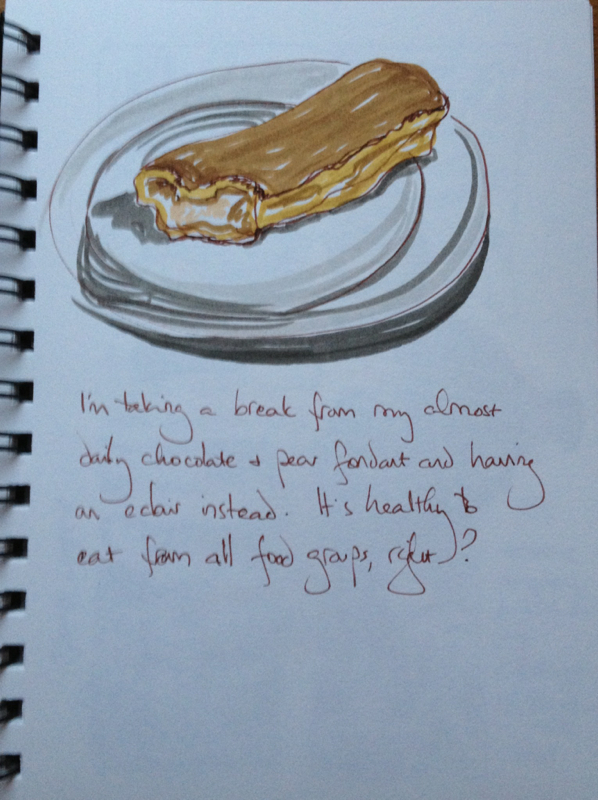 I'm taking a break from my almost
daily chocolate + pear fondant and having
an eclair instead. It's healthy to
eat from all food groups, right?